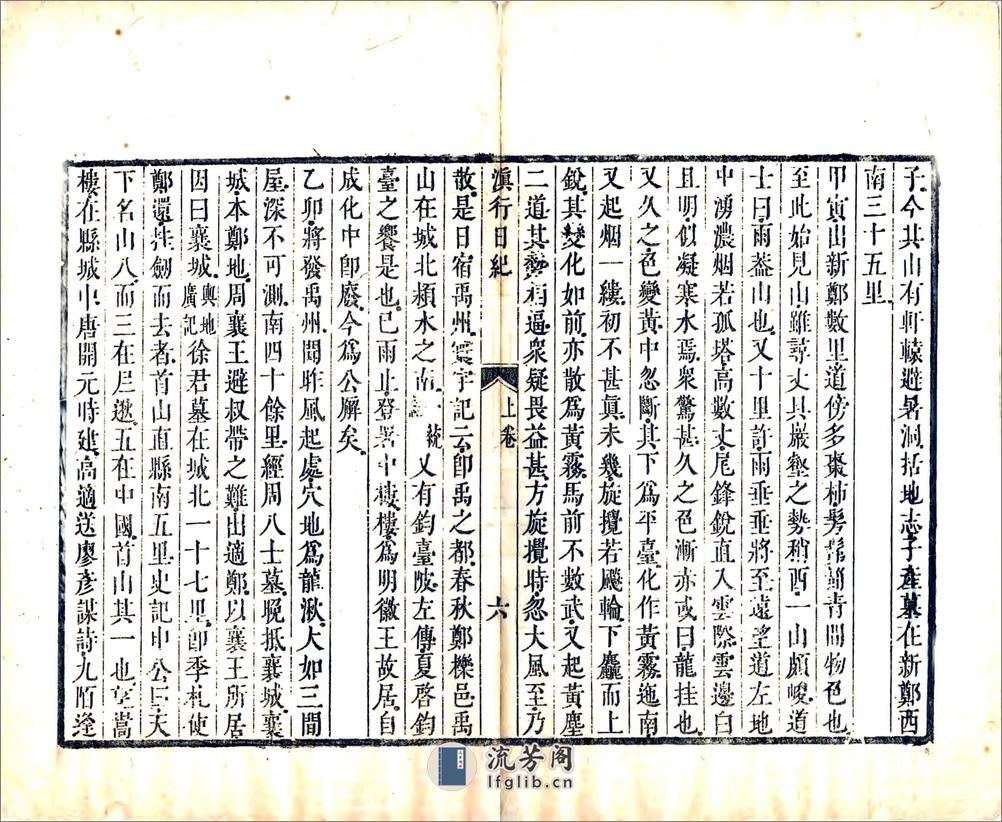 子今其山有軒轅避暑洞括地志子產墓在新鄭西
南三十五里
甲寅出新鄭數里道傍多棗柿髣髴靑間物色也
至此始見山雖尋丈具巖壑之勢稍西一山頗峻道
士曰雨葢山也又十里許雨垂垂將至遠望道左地
中湧濃烟若孤塔高數丈尾鋒銳直入雲際雲邊白
且明似凝寒水焉衆驚甚久之色漸赤或曰龍挂也
又久之色變黃中忽斷其下爲平臺化作黃霧迤南
又起烟一縷初不甚真未幾旋攪若颷輪下麤而上
銳其變化如前亦散爲黃霧馬前不數武又起黃塵
二道其勢相逼衆疑畏益甚方旋攪時忽大風至乃
滇行日紀
上卷
六
散是日宿禹州寰宇記云卽禹之都春秋鄭櫟邑禹
山在城北頴水之南統又有鈞臺陂左傳夏啓鈞
臺之饗是也已雨止登署中樓樓爲明徽王故居自
成化中卽廢今爲公廨矣
乙卯將發禹州聞昨風起處穴地爲龍湫大如三間
屋深不可測南四十餘里經周八士墓晚抵襄城襄
城本鄭地周襄王避叔帶之難出適鄭以襄王所居
因曰襄城輿地廣記徐君墓在城北一十七里卽季札使
鄭還挂劒而去者首山直縣南五里史記申公曰天
下名山八而三在蠻夷五在中國首山其一也嵩
樓在縣城中唐開元時建高適送廖彥謀詩九陌逢
流芳阁
lfglib.cn